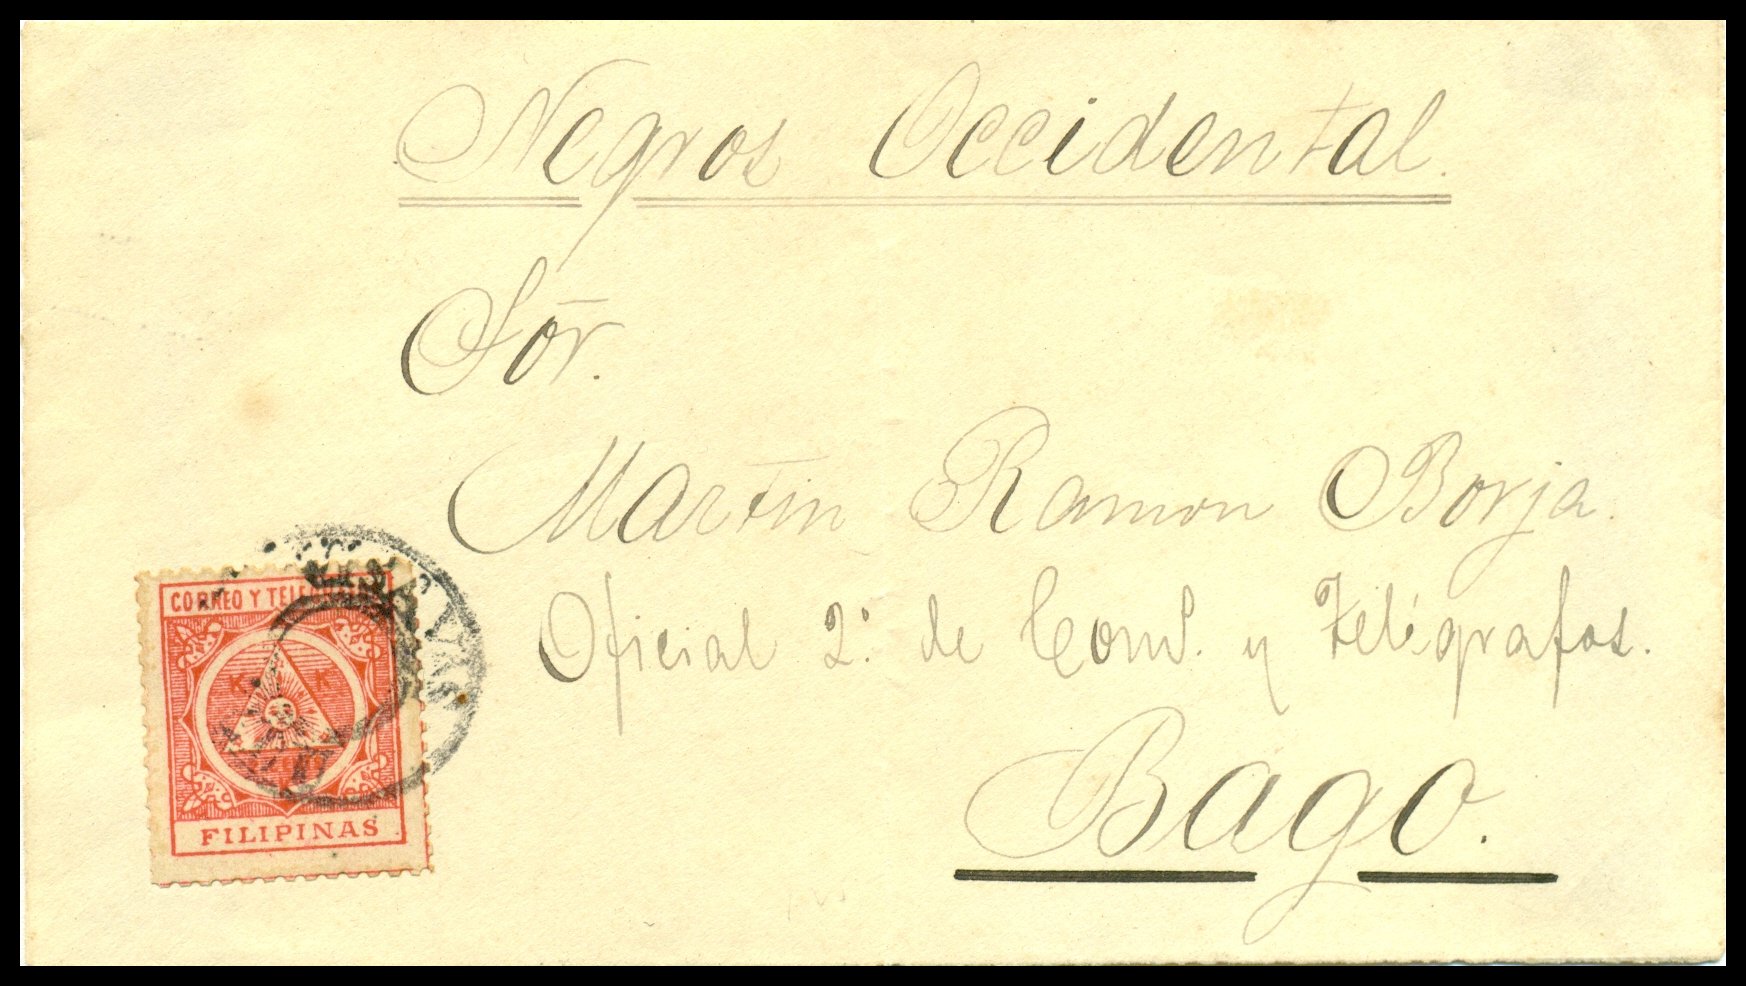 Negros Occidental.
Sōr.
Martin Ramon Borja.
Oficial 2.º de Comś. y Telégrafos.
Bago.
CORREO Y
K K
FILIPINAS